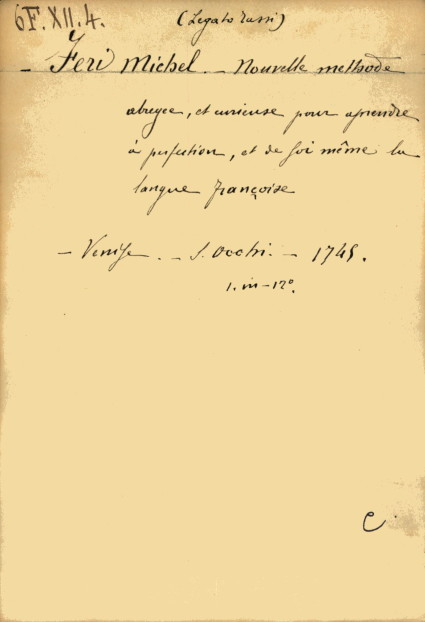 6F.XII.4.
(Legato Zussi)
– Feri Michel. – Nouvelle methode
abregée, et curieuse pour aprendre
à perfection, et de soi même la
langue françoise
– Venise. – S. Occhi. – 1745.
1. in–12°.
C.